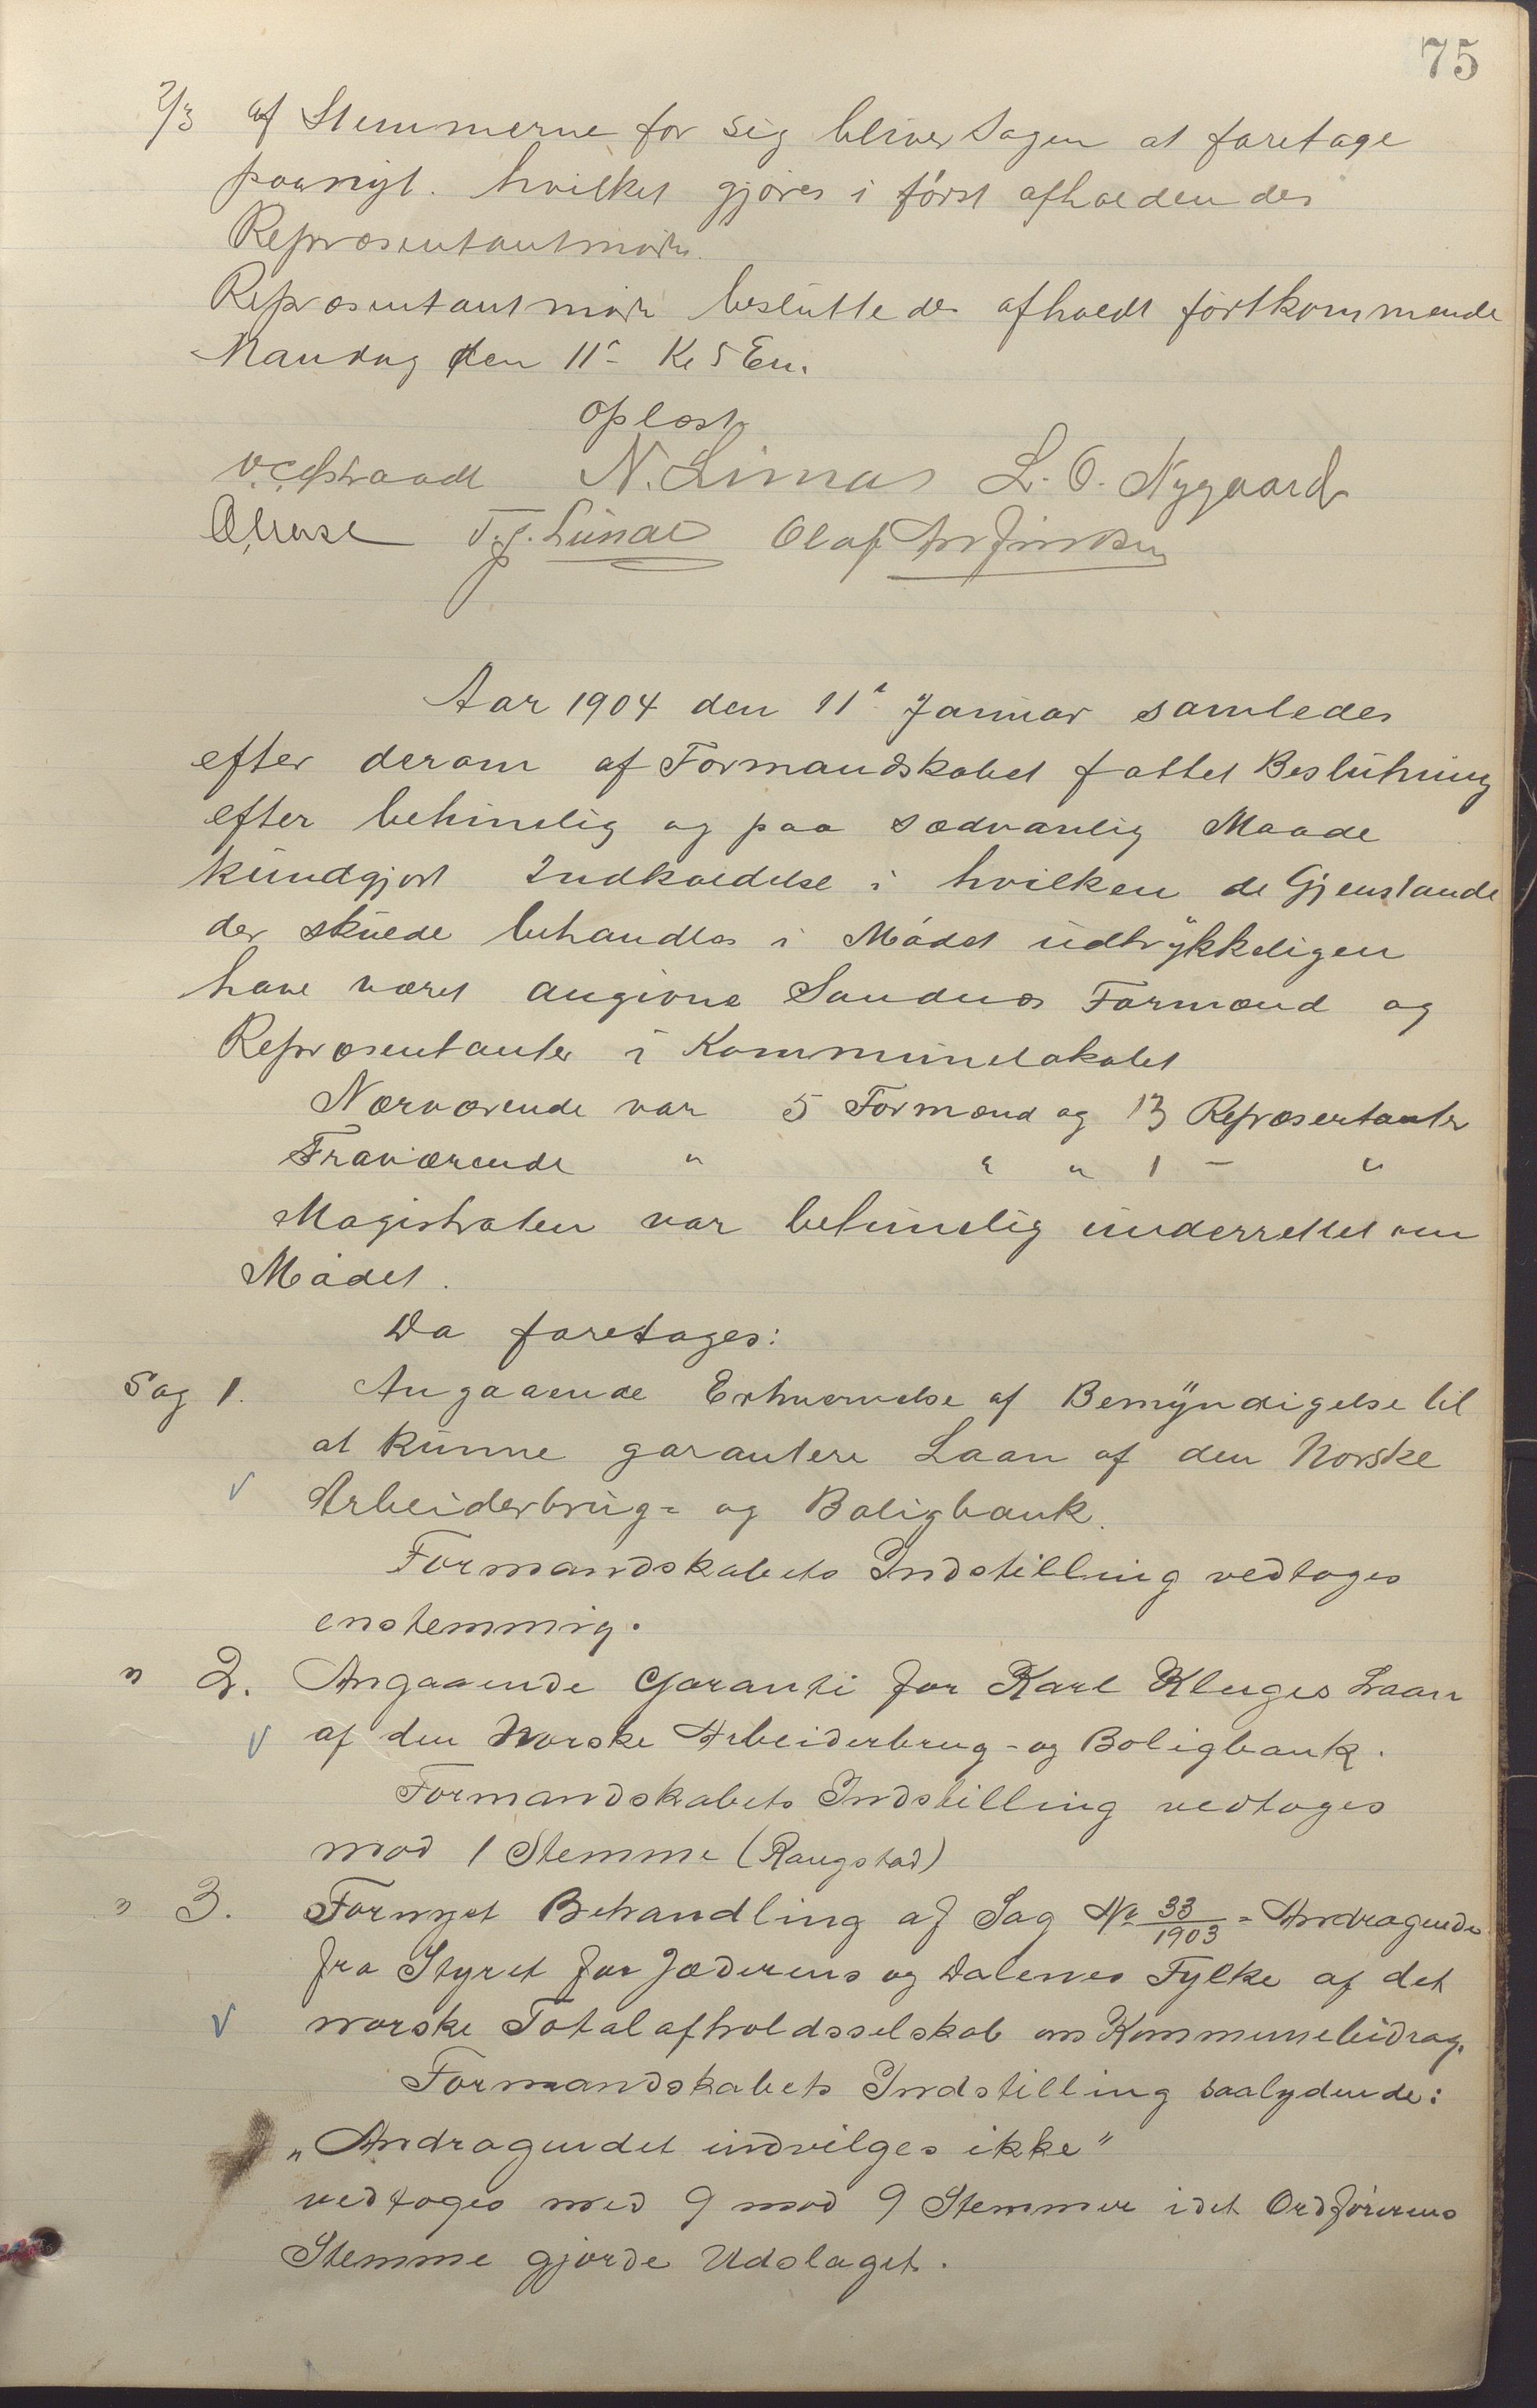 75
2/3 af Stemmerne for sig bliver Sagen at foretage
paanyt. hvilket gjøres i først afholdendes
Repræsentantmøde.
Repræsentantmøde besluttedes afholdt førstkommende
Mandag den 11te Kl 5 Em.
Oplæst
N. Limas L. O. Nygaard
T. J. Lunde Olaf
Aar 1904 den 11te Januar samledes
efter derom af Formandskabet fattet Beslutning
efter betimelig og paa sædvanlig Maade
kundgjort Indkaldelse i hvilken de Gjenstande
der skulde behandles i Mødet udtrykkeligen
have været angivne Sandnes Formænd og
Repræsentanter i Kommunelokalet
Nærværende var 5 Formænd og 13 Repræsentanter
Fraværende " " " 1 – "
Magistraten var betimelig underrettet om
Mødet.
Da foretages:
Sag 1. Angaaende Erhvervelse af Bemyndigelse til
at kunne garantere Laan af den Norske
Arbeiderbrug= og Boligbank.
Formandskabets Indstilling vedtoges
enstemmig.
" 2. Angaaende Garanti for Karl Kluges Laan
af den Norske Arbeiderbrug- og Boligbank.
Formandskabets Indstilling vedtoges
mod 1 Stemme (Raugstad)
" 3. Fornyet Behandling af Sag No 33/1903 = Andragende
fra Styret for Jæderens og Dalenes Fylke af det
norske Totalafholdsselskab om Kommunebidrag.
Formandskabets Indstilling saalydende:
„Andragendet indvilges ikke"
vedtoges med 9 mod 9 Stemmer idet Ordførerens
Stemme gjorde Udslaget.